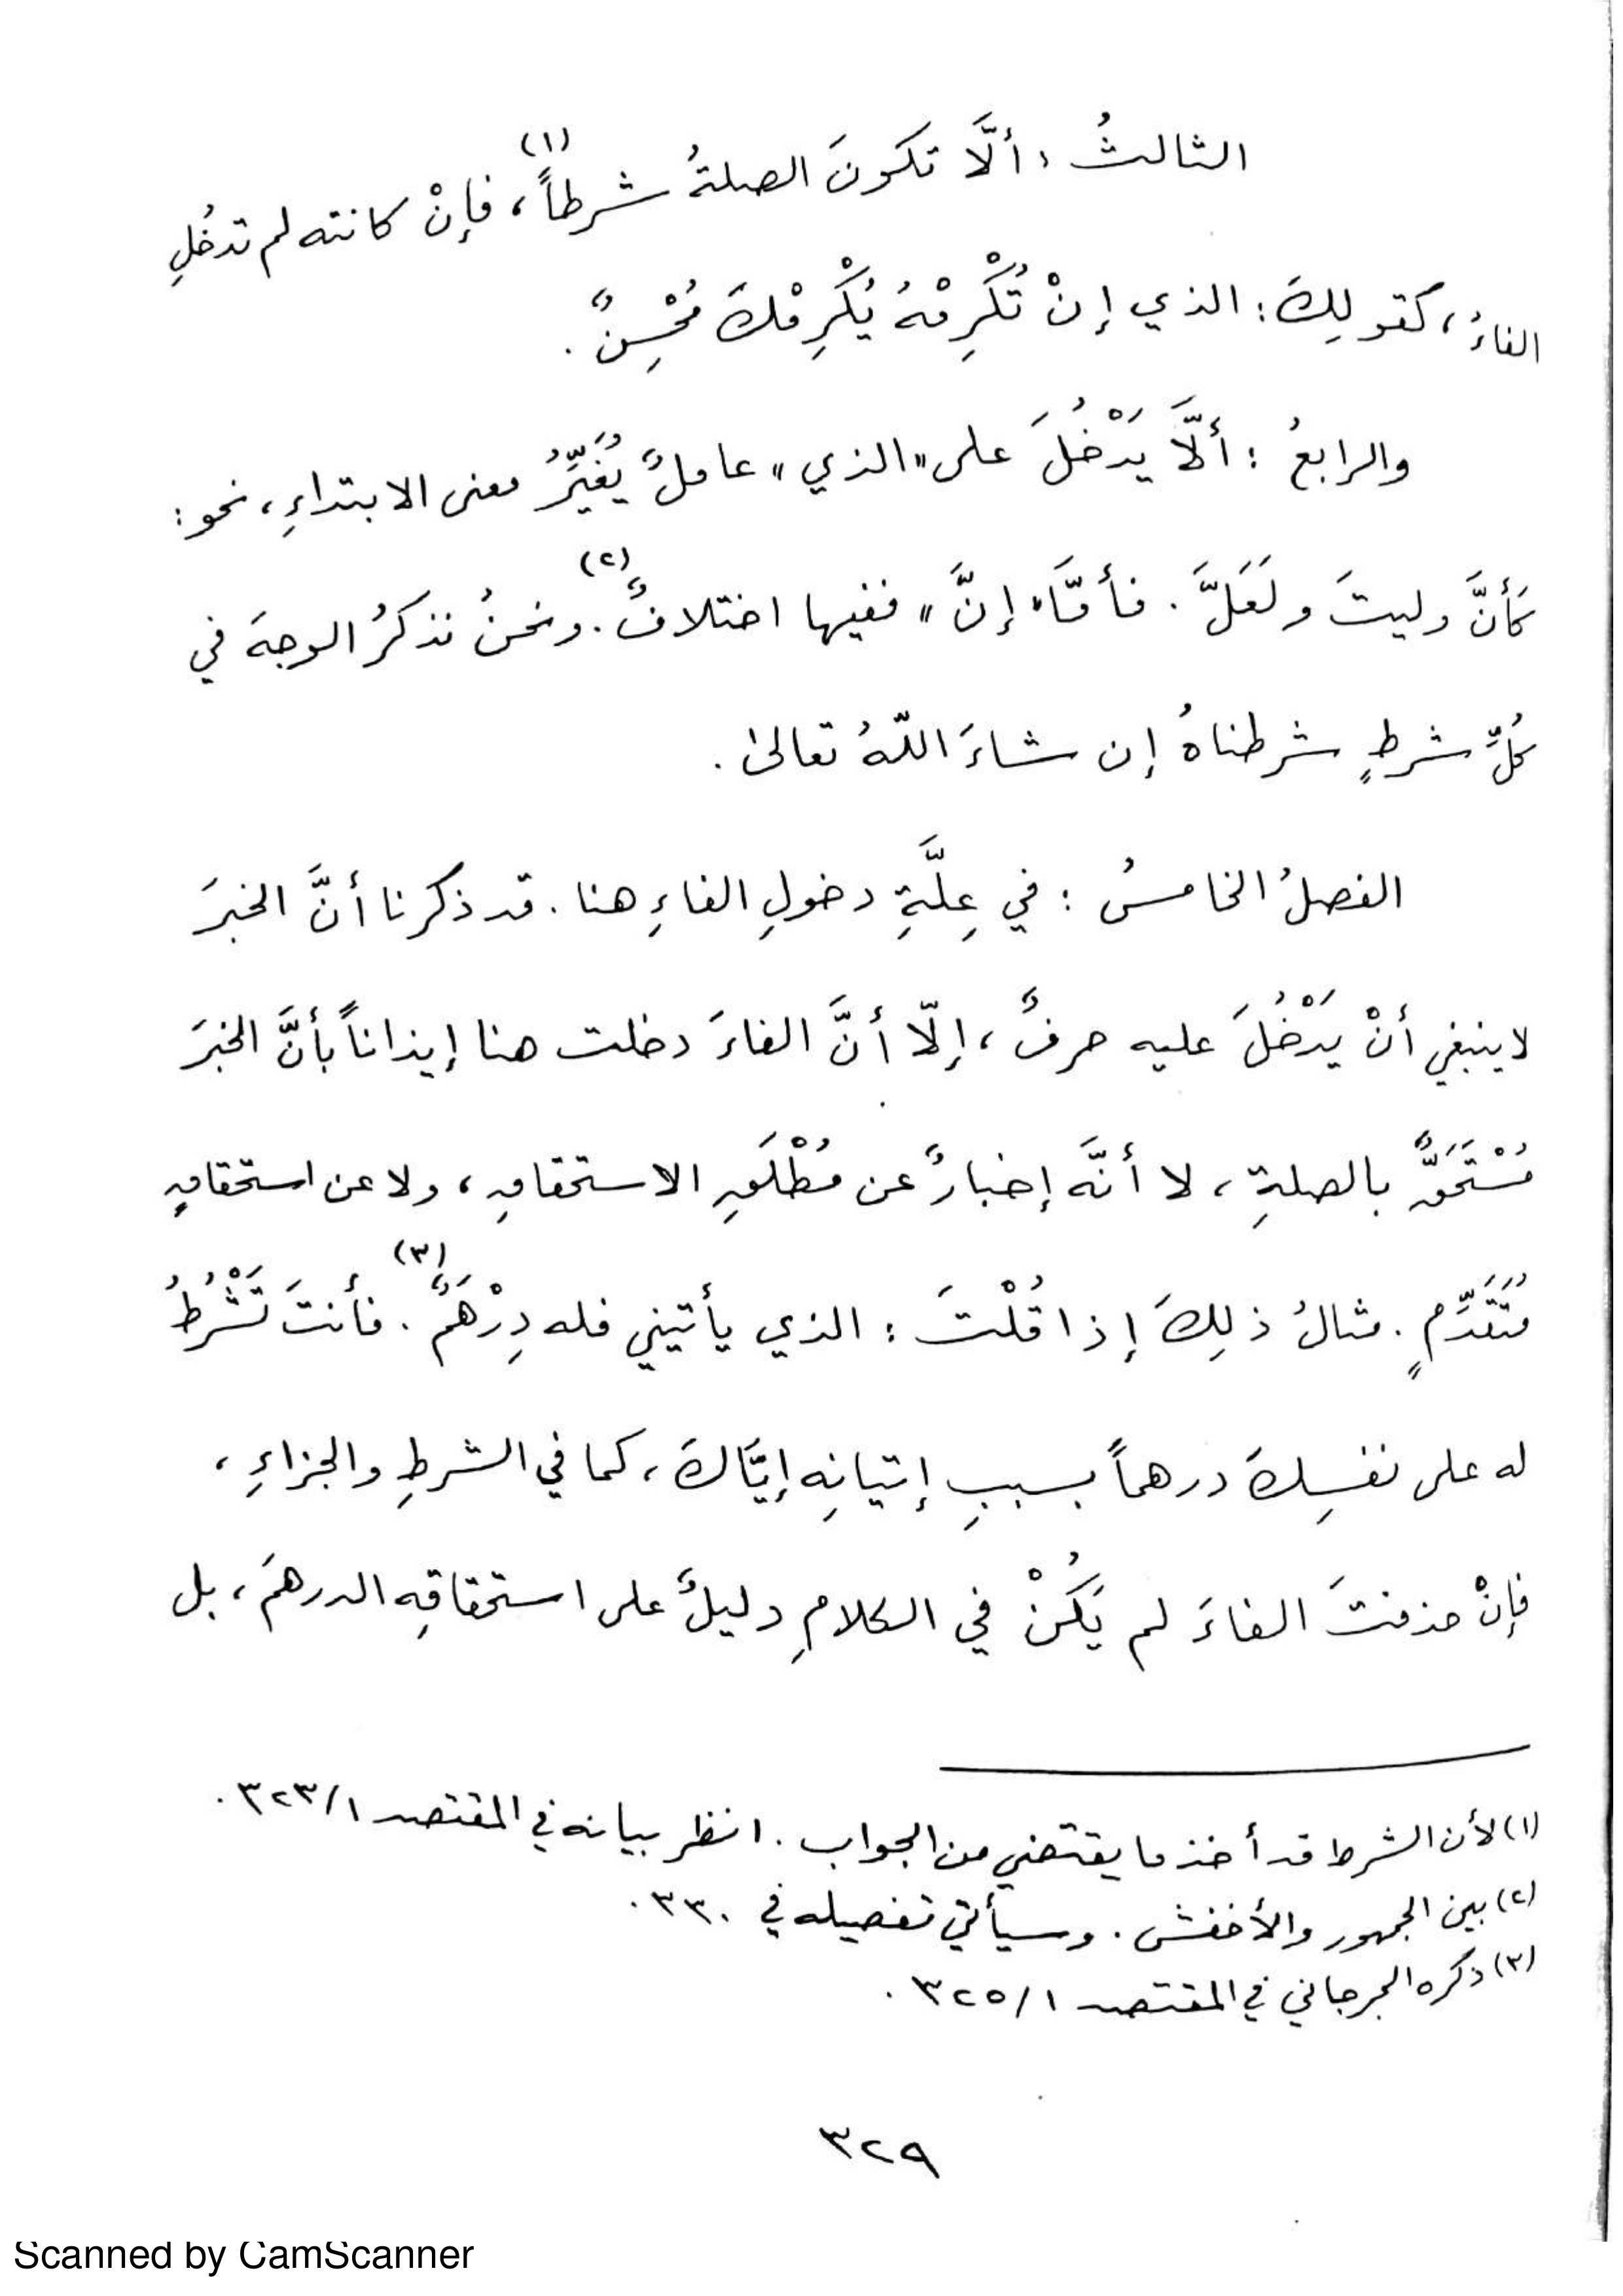 الثالثُ : ألَّا تكونَ الصلةُ شرطاً(١)، فإنْ كانت لم تدخُلِ
الفاءُ، كقولِكَ : الذي إنْ تُكْرِمْهُ يُكْرِمْكَ مُحْسِنٌ .
والرابعُ : ألَّا يَدْخُلَ على "الذي" عاملٌ يُغَيِّرُ معنى الابتداءِ، نحو :
كأنَّ وليتَ ولَعَلَّ . فأمَّا "إنَّ" ففيها اختلافٌ(٢). ونحنُ نذكرُ الوجهَ في
كُلِّ شرطٍ شرطناهُ إن شاءَ اللّهُ تعالىٰ .
الفصلُ الخامسُ : في عِلَّةِ دخولِ الفاءِ هنا . قد ذكرنا أنَّ الخبرَ
لا ينبغي أنْ يَدْخُلَ عليه حرفٌ، إلّا أنَّ الفاءَ دخلت هنا إيذاناً بأنَّ الخبرَ
مُسْتَحَقٌّ بالصلةِ، لا أنَّه إخبارٌ عن مُطْلَقِ الاستحقاقِ، ولا عن استحقاقٍ
مُتَقَدِّمٍ . مثالُ ذلِكَ إذا قُلْتَ : الذي يأتيني فله دِرْهَمٌ(٣). فأنتَ تَشْرُطُ
له على نفسِكَ درهماً بسببِ إتيانِه إيَّاكَ، كما في الشرطِ والجزاءِ،
فإنْ حذفتَ الفاءَ لم يَكُنْ في الكلامِ دليلٌ على استحقاقِه الدرهمَ، بل
(١) لأن الشرط قد أخذ ما يقتضي من الجواب . انظر بيانه في المقتصد ٣٢٣/١ .
(٢) بين الجمهور والأخفش . وسيأتي تفصيله في ٣٣٠ .
(٣) ذكره الجرجاني في المقتصد ٣٢٥/١ .
٣٢٩
Scanned by CamScanner